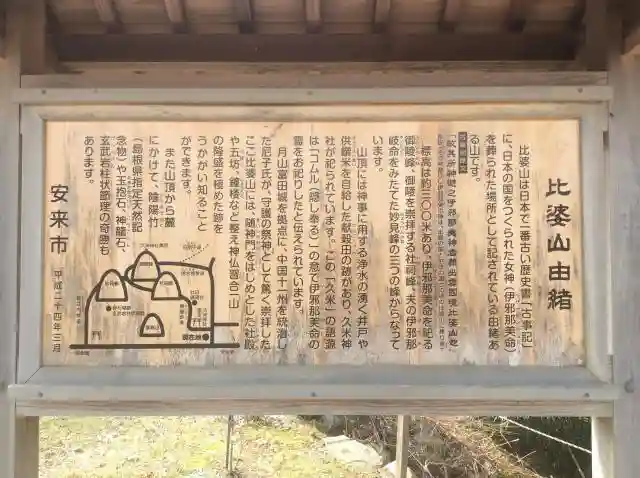 比婆山由緒
比婆山は日本で一番古い歴史書「古事記」
に、日本の国をつくられた女神（伊邪那美命）
を葬られた場所として記されている由緒あ
る山です。
「故其所神避之伊邪那美神者葬出雲国与伯伎国堺比婆山也」
標高は約三〇〇米あり、伊邪那美命を祀る
御陵峰、御陵を崇拝する社祠峰、夫の伊邪那
岐命をみたてた妙見峰の三つの峰からなって
います。
山頂には神事に用する浄水の湧く井戸や
供饌米を自給した献穀田の跡があり、久米神
社が祀られています。この「久米」の語源
は「コムル（隠し奉る）」の意で伊邪那美命の
霊をお祀りしたと伝えられています。
月山富田城を拠点に、中国十一州を統治し
た尼子氏が、守護の祭神として篤く崇拝した
ここ比婆山には、随神門をはじめとした社殿
や五坊、鐘楼など整え神仏習合一山
の隆盛を極めた跡を
うかがい知ること
ができます。
また山頂から麓
にかけて、陰陽竹
（島根県指定天然記
念物）や玉抱石、神籠石、
玄武岩柱状節理の奇勝も
あります。
安来市
平成二十四年三月